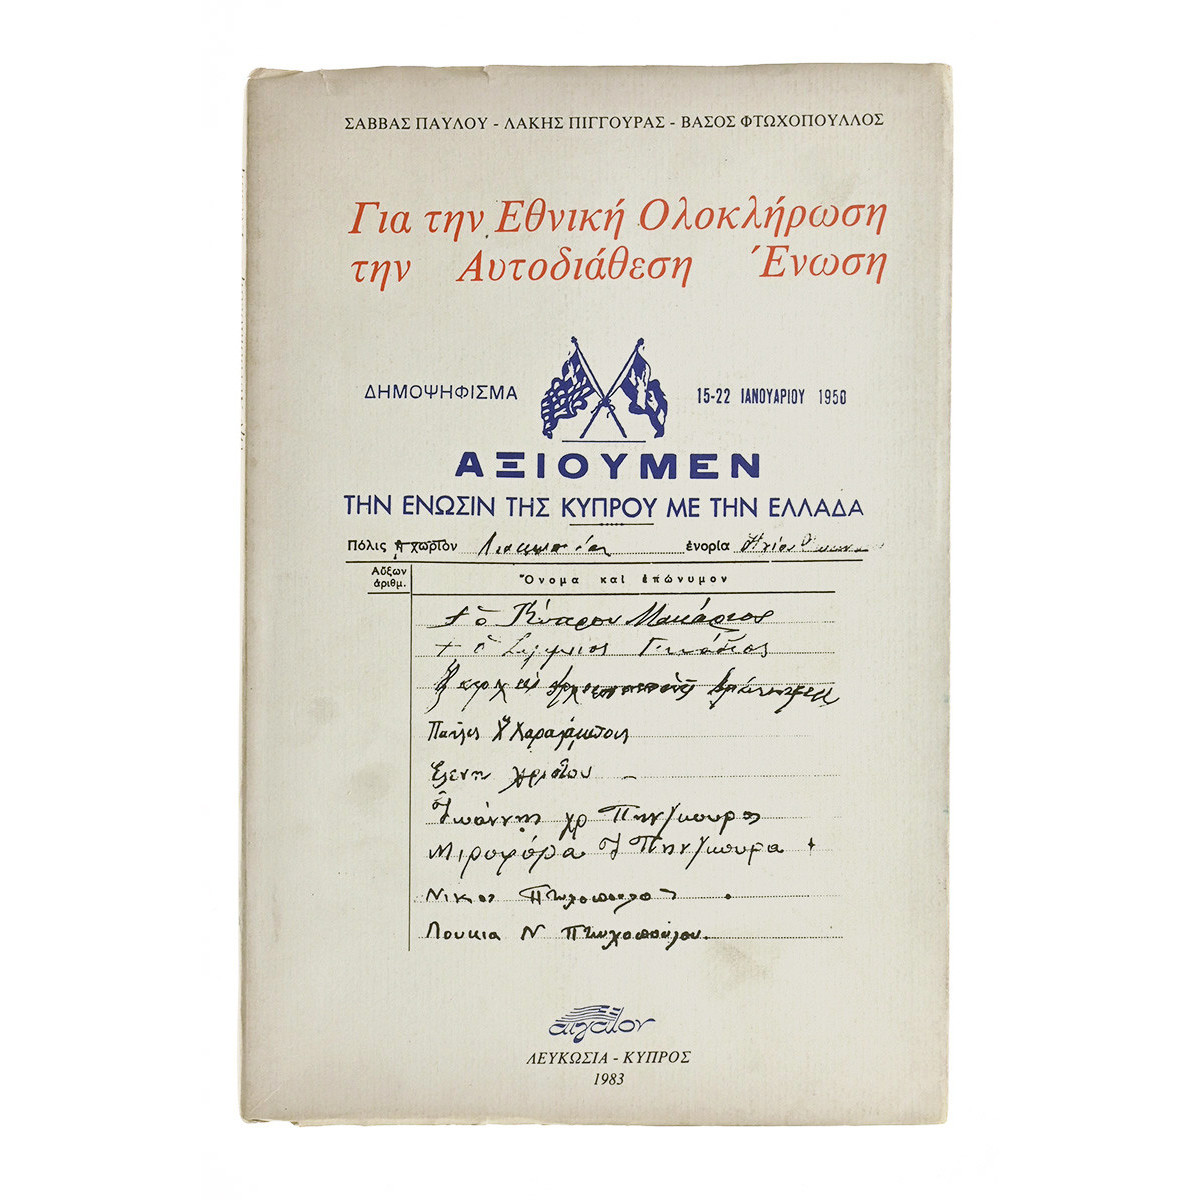 ΣΑΒΒΑΣ ΠΑΥΛΟΥ - ΛΑΚΗΣ ΠΙΓΓΟΥΡΑΣ - ΒΑΣΟΣ ΦΤΩΧΟΠΟΥΛΛΟΣ
Για την Εθνική Ολοκλήρωση
την Αυτοδιάθεση Ένωση
ΔΗΜΟΨΗΦΙΣΜΑ 15-22 ΙΑΝΟΥΑΡΙΟΥ 1950
ΑΞΙΟΥΜΕΝ
ΤΗΝ ΕΝΩΣΙΝ ΤΗΣ ΚΥΠΡΟΥ ΜΕ ΤΗΝ ΕΛΛΑΔΑ
Πόλις ἤ χωρίον Λευκωσία ἐνορία
Αὔξων ἀριθμ. Ὄνομα καὶ ἐπώνυμον
† ὁ Κύπρου Μακάριος
† ὁ Γεννάδιος
Χαραλάμπους
Ἑλένη Χρίστου
Ἰωάννης Χρ Πηγκουρας
Μιροφόρα Ι Πηγκουρα
Νίκος Πτωχοπουλος
Λουκια Ν Πτωχοπούλου.
αιγαίον
ΛΕΥΚΩΣΙΑ - ΚΥΠΡΟΣ
1983